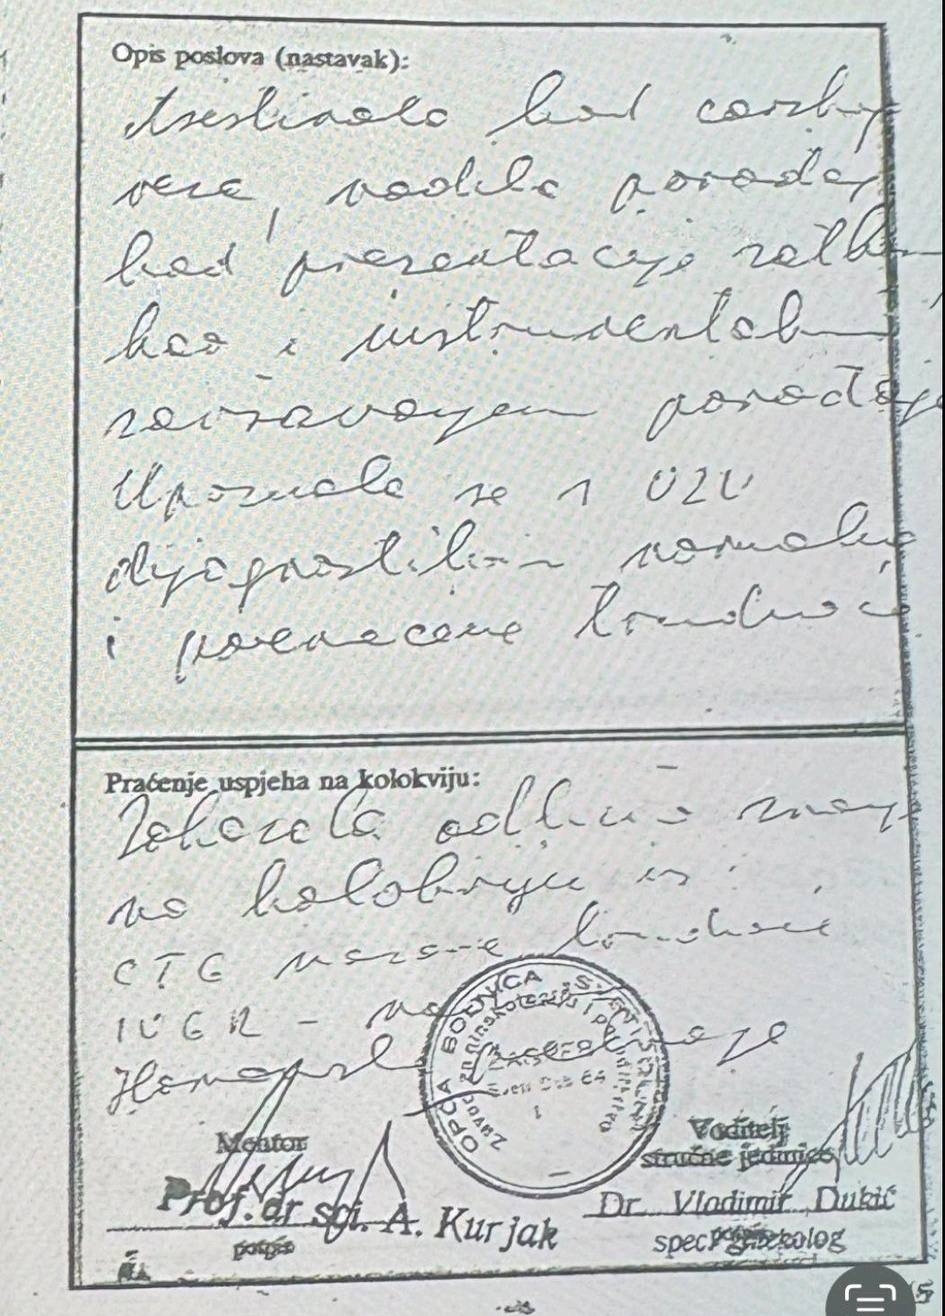 Opis poslova (nastavak):
Asestirala kod carskog
reza, vodila porođaj
kod prezentacije zatkom
kao i instrumentalnim
završavanjem porođaja
Upoznala se s UZV
dijagnostikom normalne
i poremećene trudnoće
Praćenje uspjeha na kolokviju:
Pokazala odlično znanje
na kolokviju iz:
CTG nizane trudnoće
IUGR -
OPĆA BOLNICA "SVETI DUH"
Zavod za ginekologiju i porodništvo
ZAGREB
Sveti Duh 64
1
Mentor
Prof. dr sci. A. Kurjak
potpis
Voditelj
stručne jedinice
Dr. Vladimir Dukić
spec. ginekolog